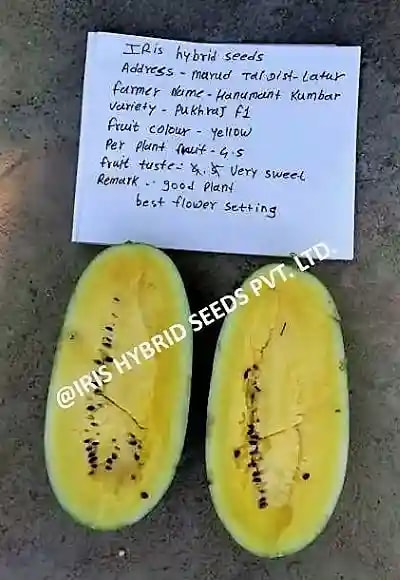 IRis hybrid seeds
Address - marud Tal Dist- Latur
farmer Name - Hanumant Kumbar
variety - Pukhraj f1
fruit colour - yellow
Per plant fruit - 4.5
fruit tuste :- very sweet
Remark :- good plant
best flower setting
@IRIS HYBRID SEEDS PVT. LTD.